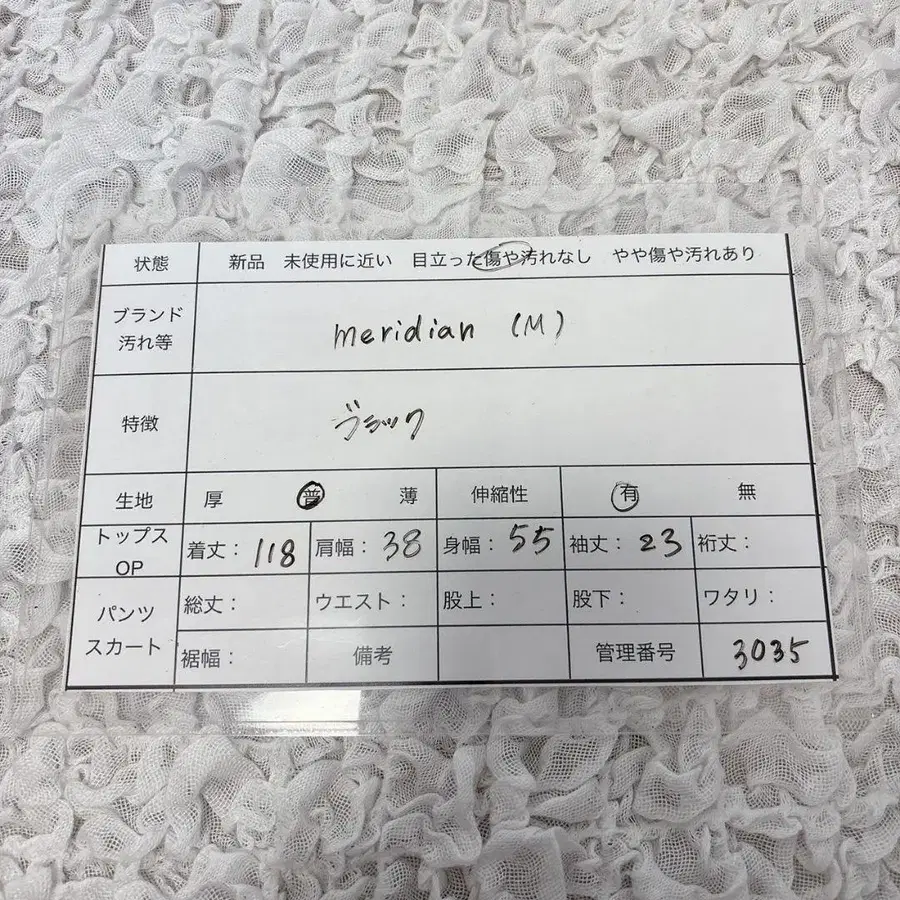 状態 新品 未使用に近い 目立った傷や汚れなし やや傷や汚れあり
ブランド
汚れ等
meridian (M)
特徴 ブラック
生地 厚 普 薄 伸縮性 有 無
トップス
OP
着丈: 118 肩幅: 38 身幅: 55 袖丈: 23 裄丈:
パンツ
スカート
総丈: ウエスト: 股上: 股下: ワタリ:
裾幅: 備考 管理番号 3035